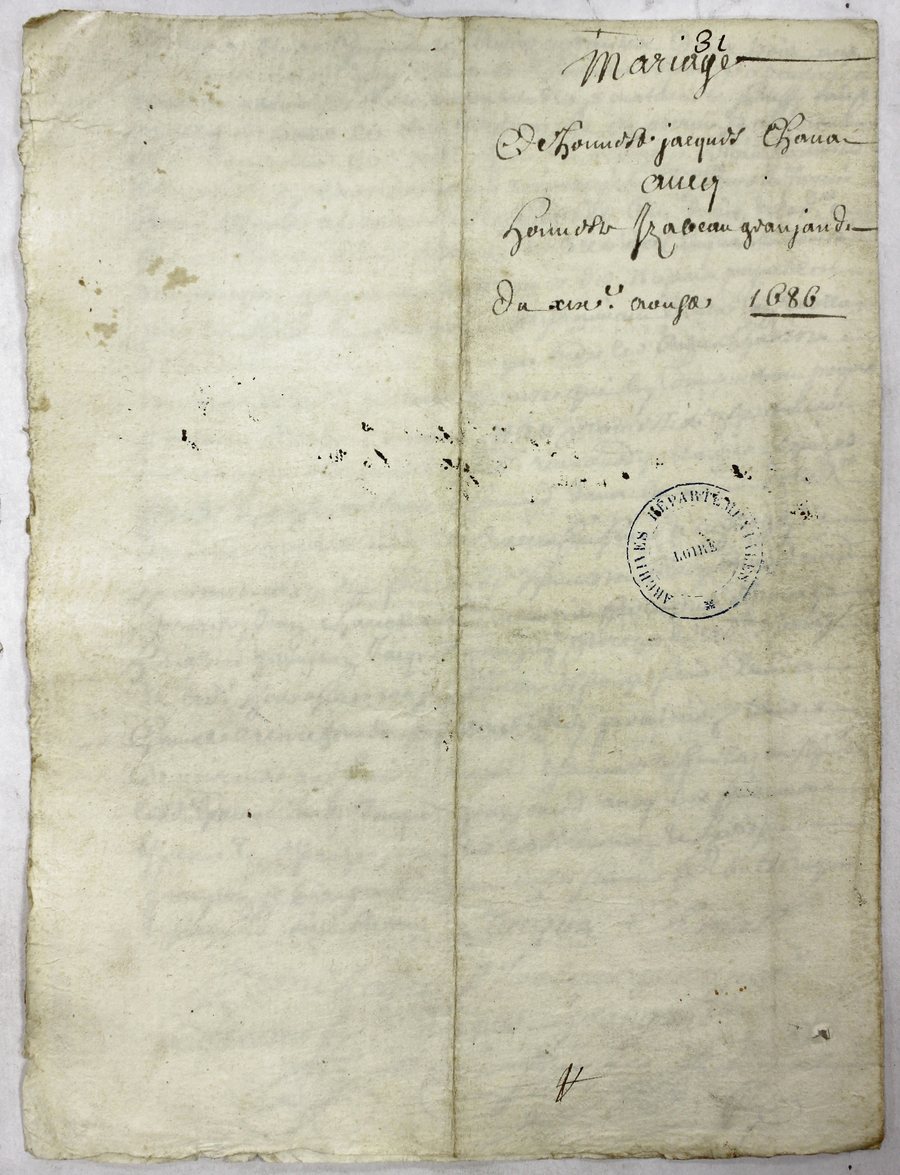 31
Mariage
De honneste jacques Chava
avecq
honneste Izabeau granjand
Du xixe. aougst 1686
ARCHIVES DÉPARTEMENTALES
LOIRE